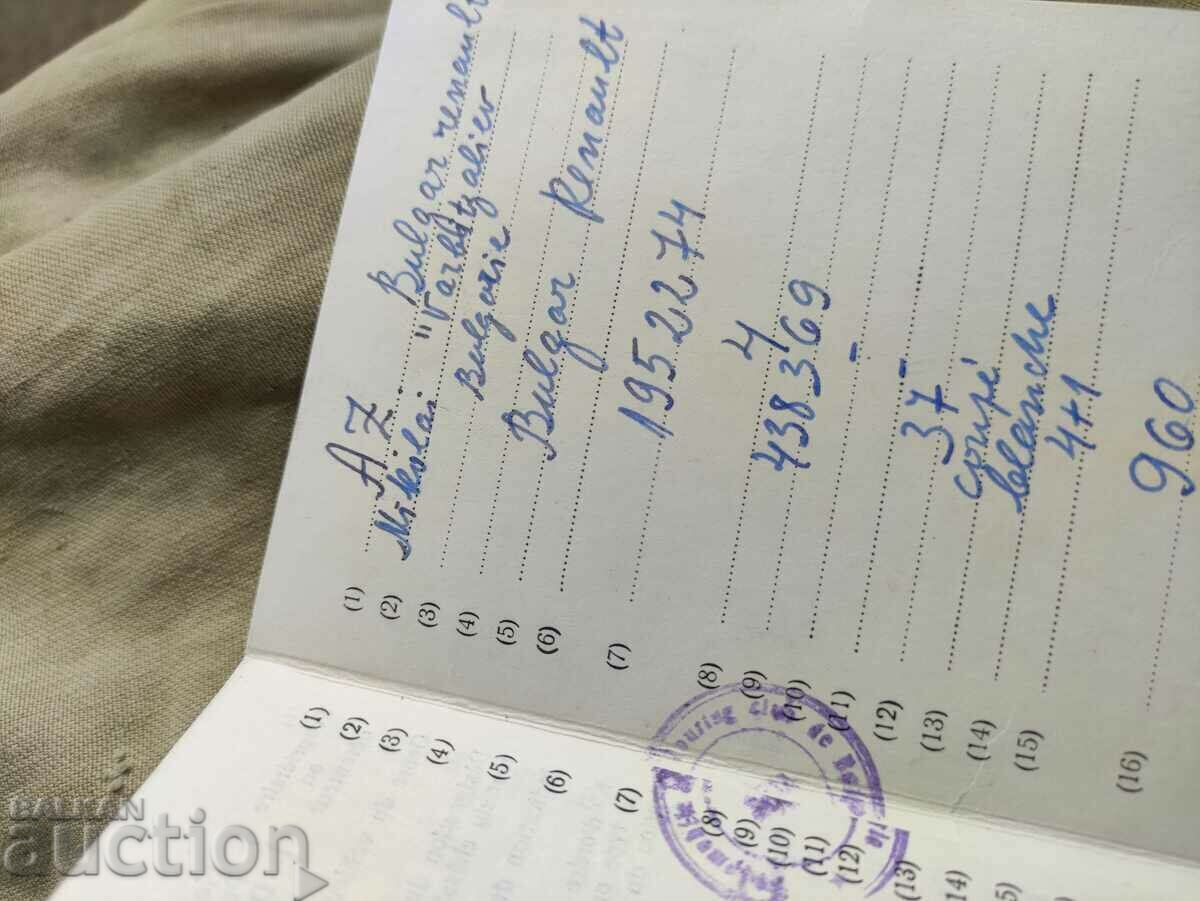 (1) AZ Bulgar renault
(2) Nikolai
(3) Bulgarie
(4)
(5) Bulgar Renault
(6)
(7) 1952274
(8) 4
(9) 438369
(10) -
(11) -
(12) 37
(13) coupé
(14) blanche
(15) 4+1
(16) 960
(1)
(2)
(3)
(4)
(5)
(6)
(7)
(8)
(9)
(10)
(11)
(12)
(13)
14)
5)
Touring Club de
BALKAN
auction